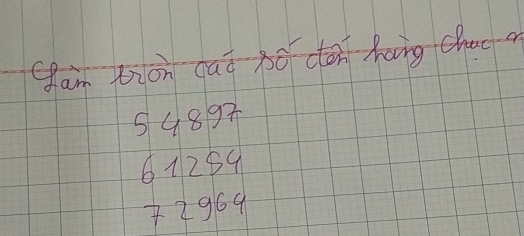 Làm tròn các số đến hàng chục n
54897
61254
72964